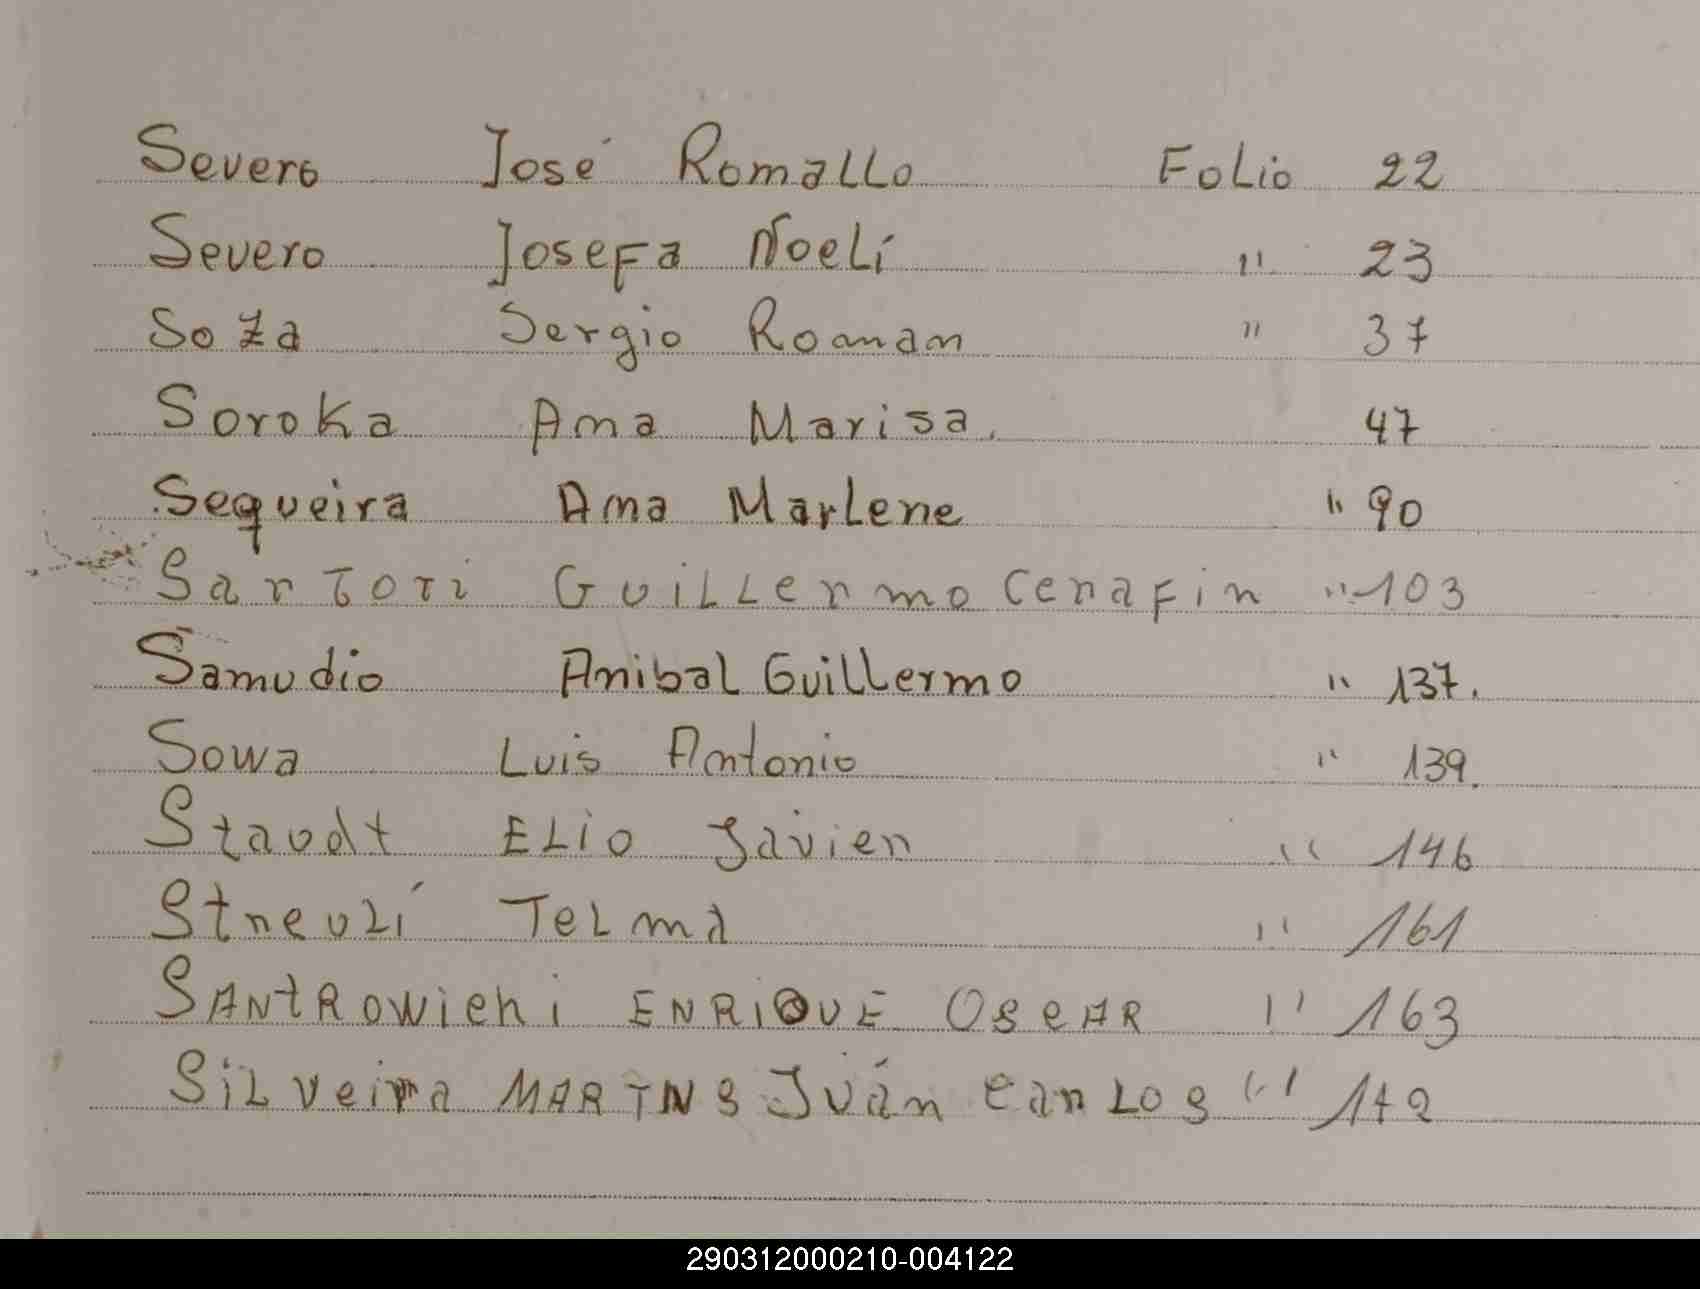 Severo José Romallo Folio 22
Severo Josefa Noelí " 23
Soza Sergio Roman " 37
Soroka Ana Marisa. 47
Sequeira Ana Marlene " 90
Sartori Guillermo Cerafin " 103
Samudio Anibal Guillermo " 137.
Sowa Luis Antonio " 139.
Staudt Elio Javier " 146
Streuli Telma " 161
SANtROwichi ENRiQUE OSCAR " 163
Silveira MARTNS Iván Carlos " 172
290312000210-004122